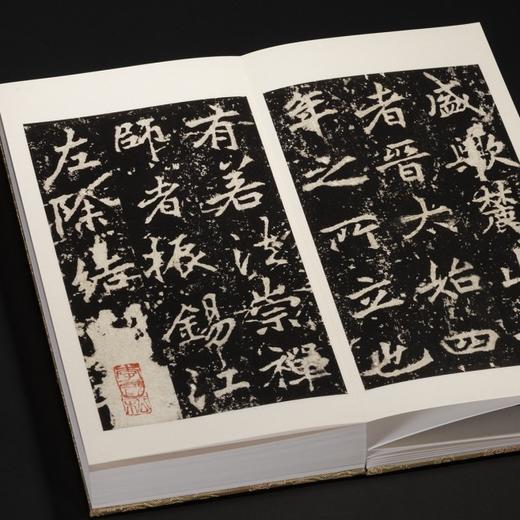 盛歟麓山
者晉太始四
年之所立也
有若法崇禪
師者振錫江
左除結